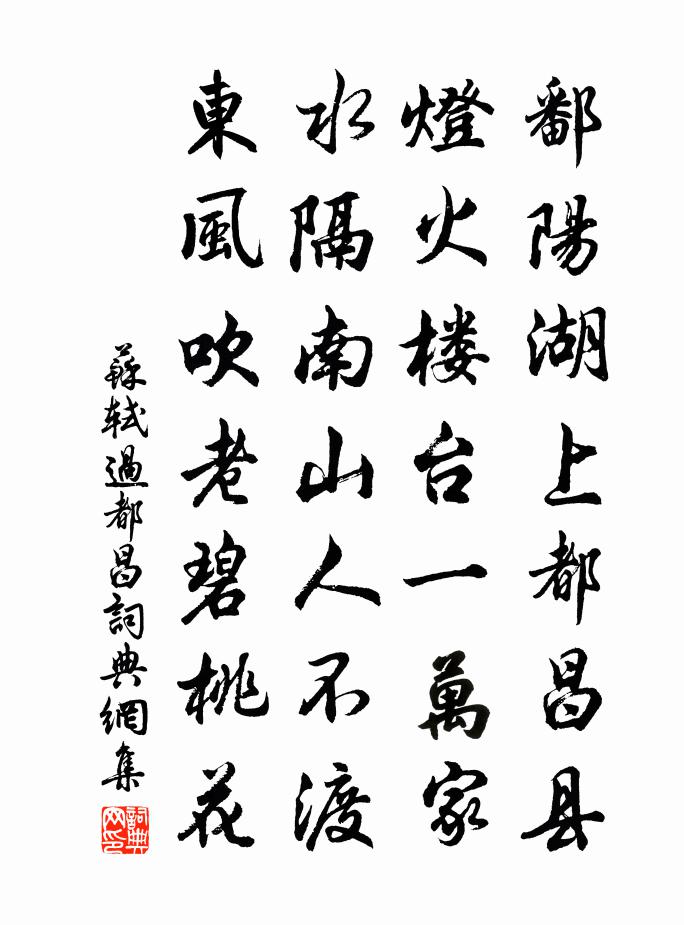 鄱陽湖上都昌县
燈火楼台一萬家
水隔南山人不渡
東風吹老碧桃花
蘇轼過都昌詞典網集
詞典网印